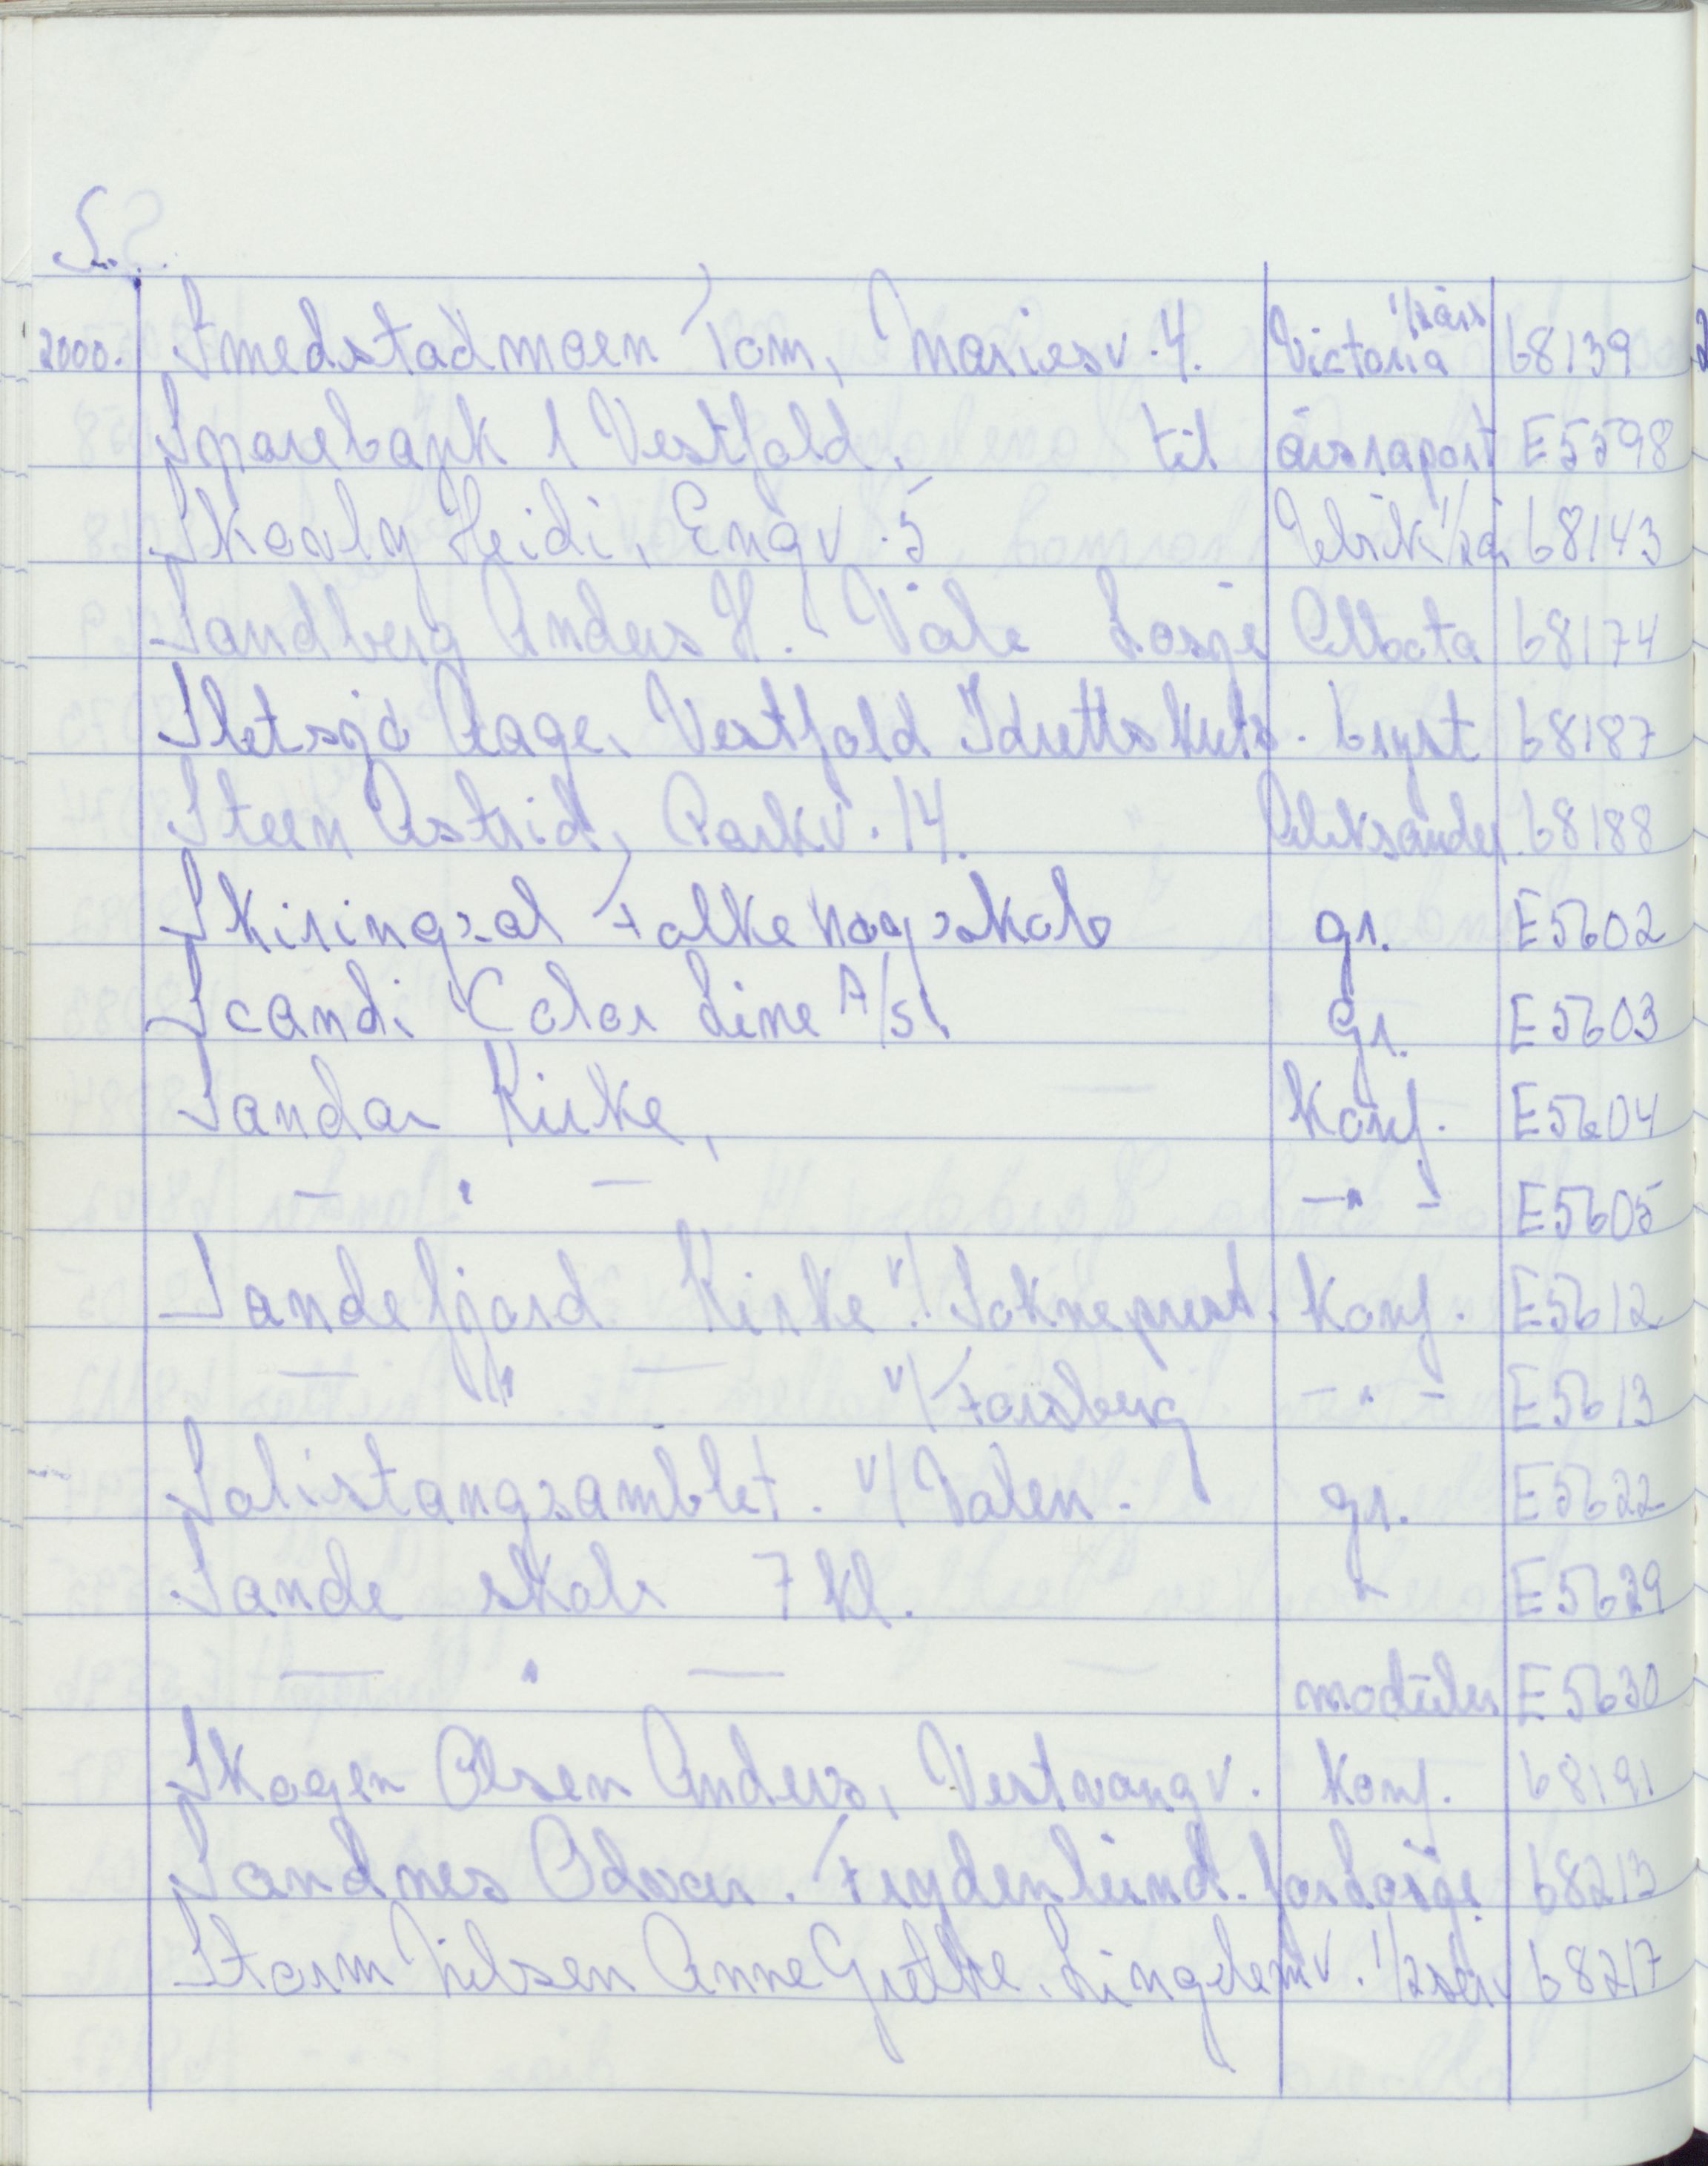 S.
2000. Smedstadmoen Tom, Mariesv. 4. Victoria 1/2 års 68139
Sparebank 1 Vestfold. til årsraport E5598
Skovly Heidi, Engv. 5 Ulrik 1/2 år 68143
Sandberg Anders H. Våle Losje 68174
Sletsjø Aage, Vestfold Idrettskrets. bryst 68187
Steen Astrid, Parkv. 14. Aleksander 68188
Skiringsal Folkehøgskole gr. E5602
Scandi Color Line A/S. gr. E5603
Sandar Kirke, Konf. E5604
— " — — " — E5605
Sandefjord Kirke v/ Sokneprest. Konf. E5612
— " — v/ Forsberg — " — E5613
Solistangsamblet. v/ Valen. gr. E5622
Sande skole 7 kl. " E5629
— " — E5630
Skogen Olsen Anders, Vestvangv. Konf. 68191
Sandnes Odvar. Frydenlund. 68213
Storm Nilsen Anne Grethe. Lingelemv. 1/2 68217